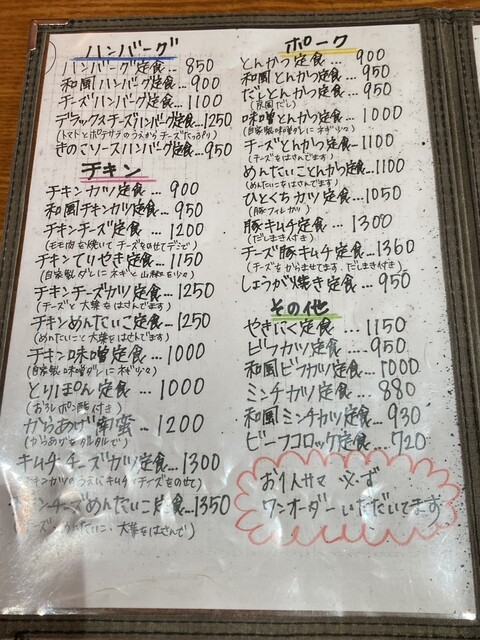 ハンバーグ
ハンバーグ定食…850
和風ハンバーグ定食…900
チーズハンバーグ定食…1100
デラックスチーズハンバーグ定食…1250
(トマトとポテサラのうえからチーズたっぷり)
きのこソースハンバーグ定食…950
チキン
チキンカツ定食…900
和風チキンカツ定食…950
チキンチーズ定食…1200
(モモ肉を焼いてチーズをのせてデミで)
チキンていやき定食…1150
(自家製ダレにネギと山椒を少々)
チキンチーズカツ定食…1250
(チーズと大葉をはさんでます)
チキンめんたいこ定食…1250
(めんたいこと大葉をはさんでます)
チキン味噌定食…1000
(自家製味噌ダレにネギ少々)
とりぽん定食…1000
(おろしポン酢付き)
からあげ南蛮…1200
(からあげをタルタルで)
キムチチーズカツ定食…1300
(チキンカツのうえにキムチとチーズをのせて)
チーズめんたいこ定食…1350
めんたいこ、大葉をはさんで)
ポーク
とんかつ定食…900
和風とんかつ定食…950
だしとんかつ定食…950
(京風だし)
味噌とんかつ定食…1000
(自家製味噌ダレにネギ少々)
チーズとんかつ定食…1100
(チーズをはさんでます)
めんたいことんかつ定食…1100
(めんたいこをはさんでます)
ひとくちカツ定食…1050
(豚フィレカツ)
豚キムチ定食…1300
(だしまき付き)
チーズ豚キムチ定食…1360
(チーズをからませてます、だしまき付き)
しょうが焼き定食…950
その他
やきにく定食…1150
ビフカツ定食…950
和風ビフカツ定食…1000
ミンチカツ定食…880
和風ミンチカツ定食…930
ビーフコロッケ定食…720
お1人サマ 必ず
ワンオーダーいただいてます